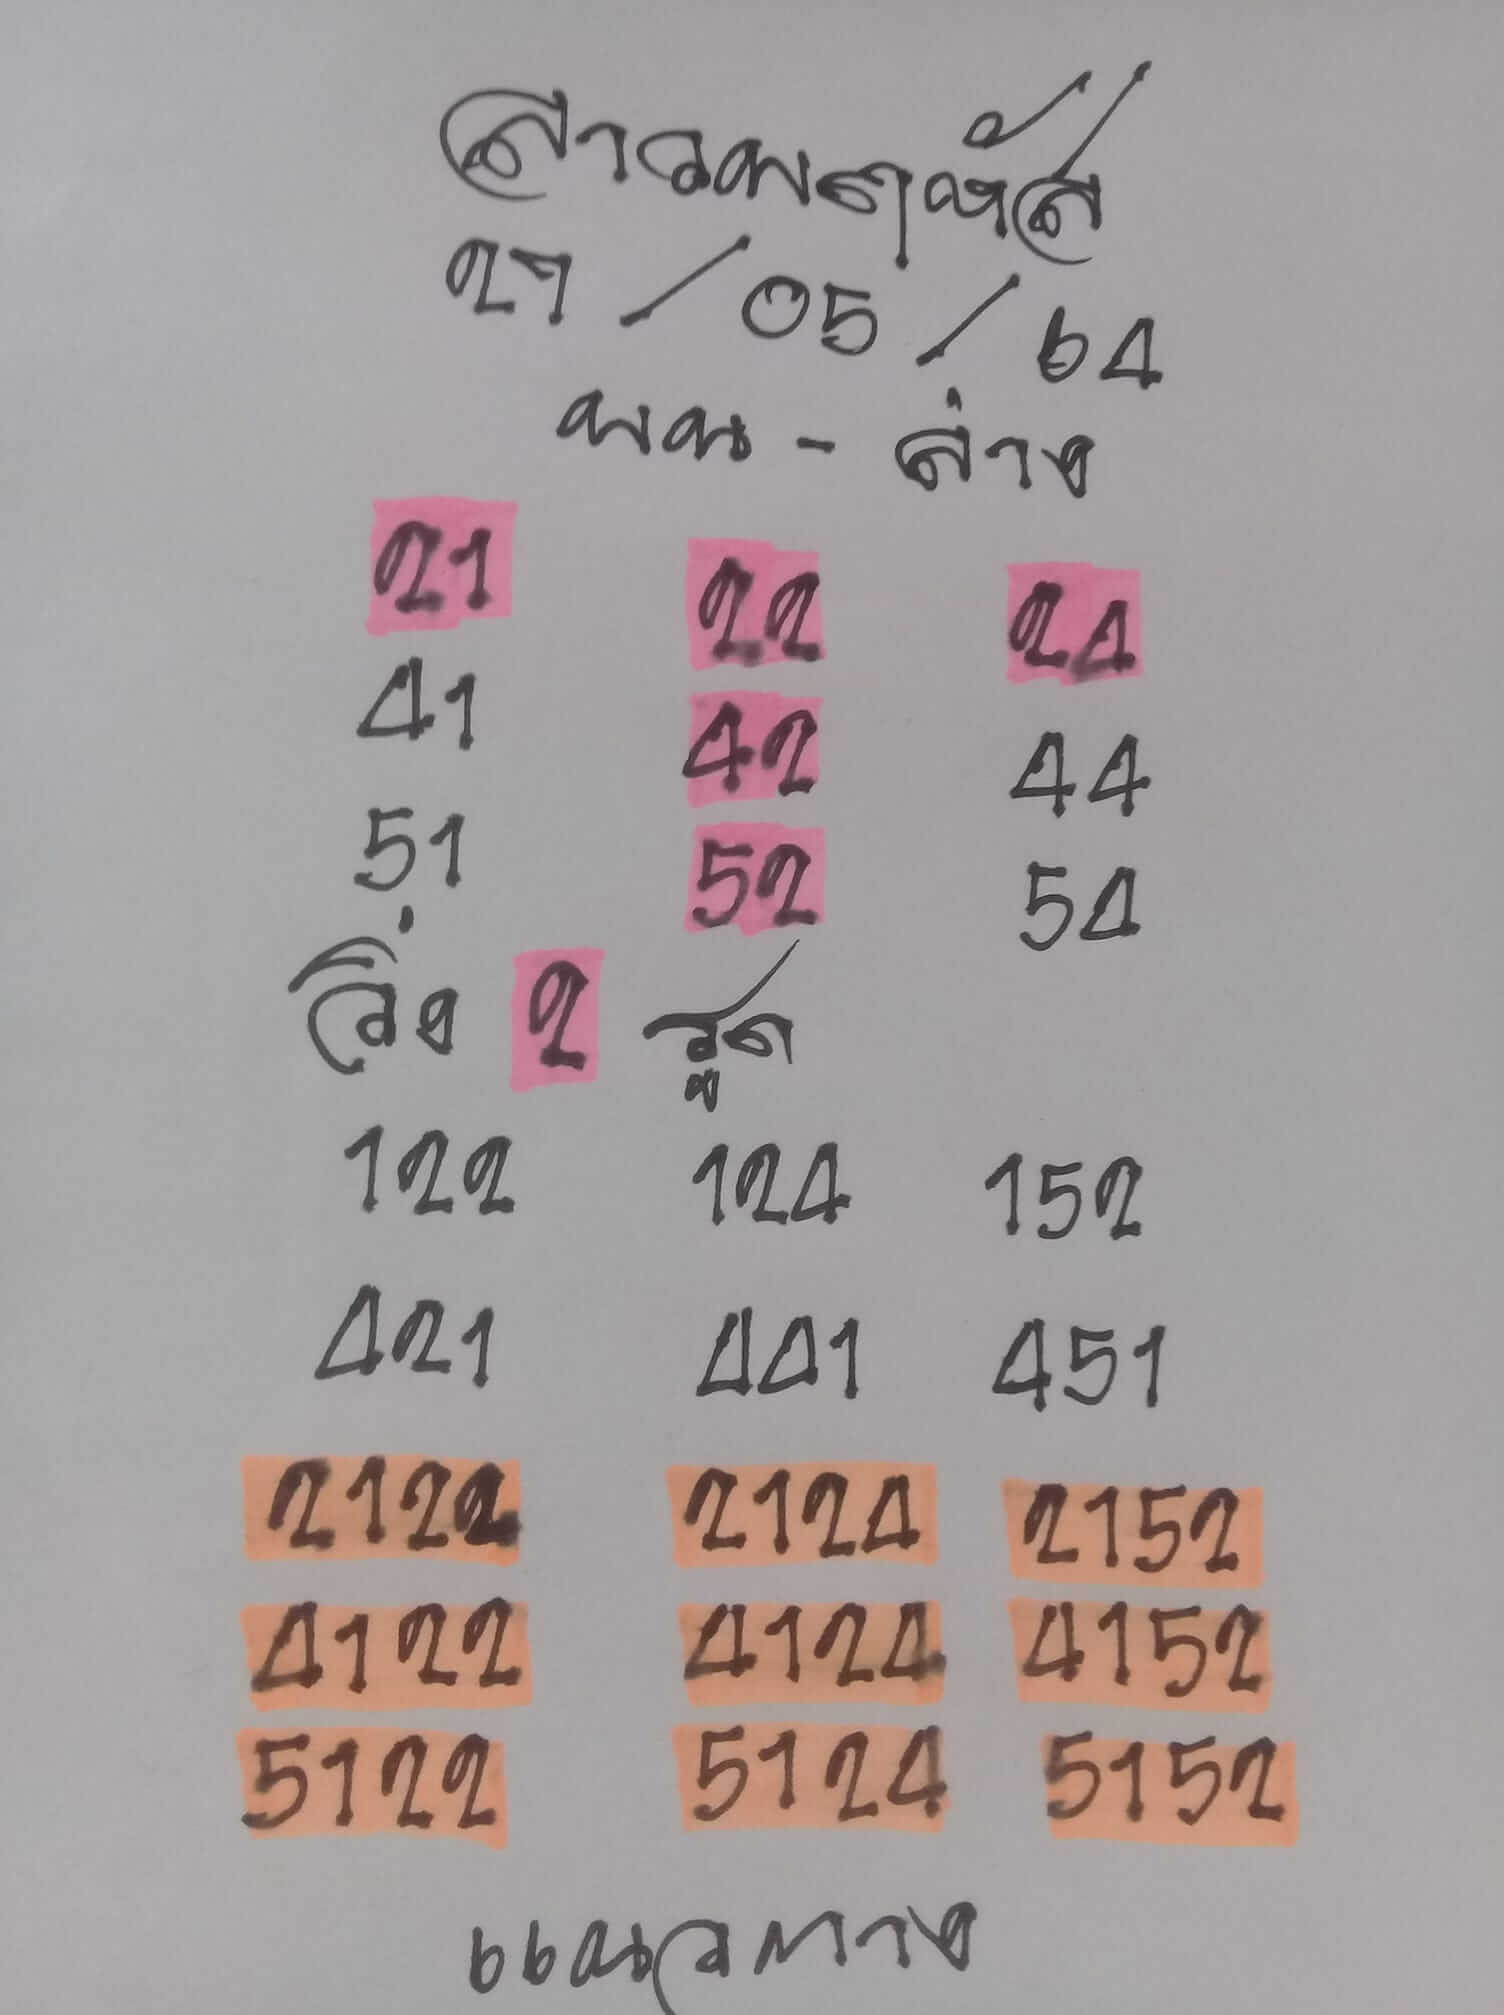 ลาวพฤหัส
27/05/64
บน - ล่าง
21 22 24
41 42 44
51 52 54
วิ่ง 2 รูด
122 124 152
421 441 451
2122 2124 2152
4122 4124 4152
5122 5124 5152
แนวทาง